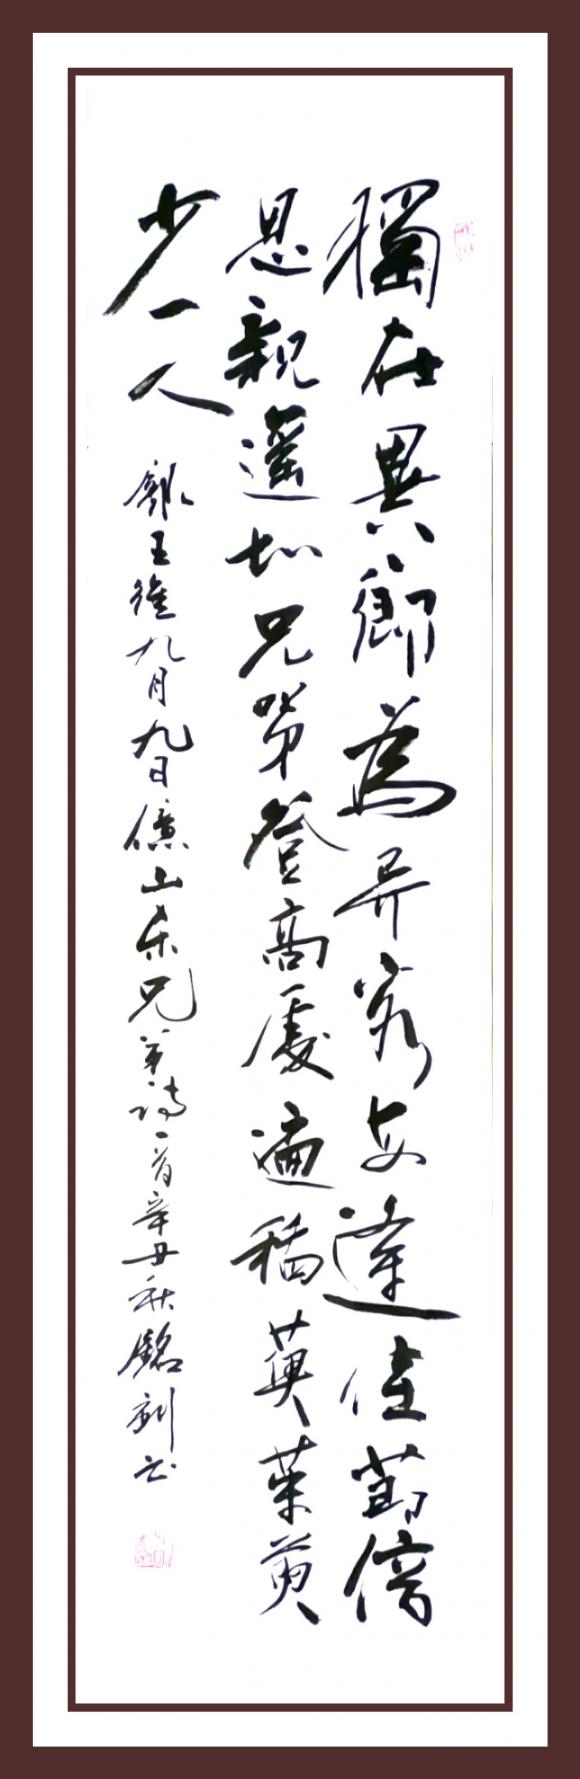 獨在異鄉為异客每逢佳節倍
思親遥知兄弟登高處遍插萸茱萸
少一人
録王維九月九日憶山東兄弟詩一首辛丑秋銘书